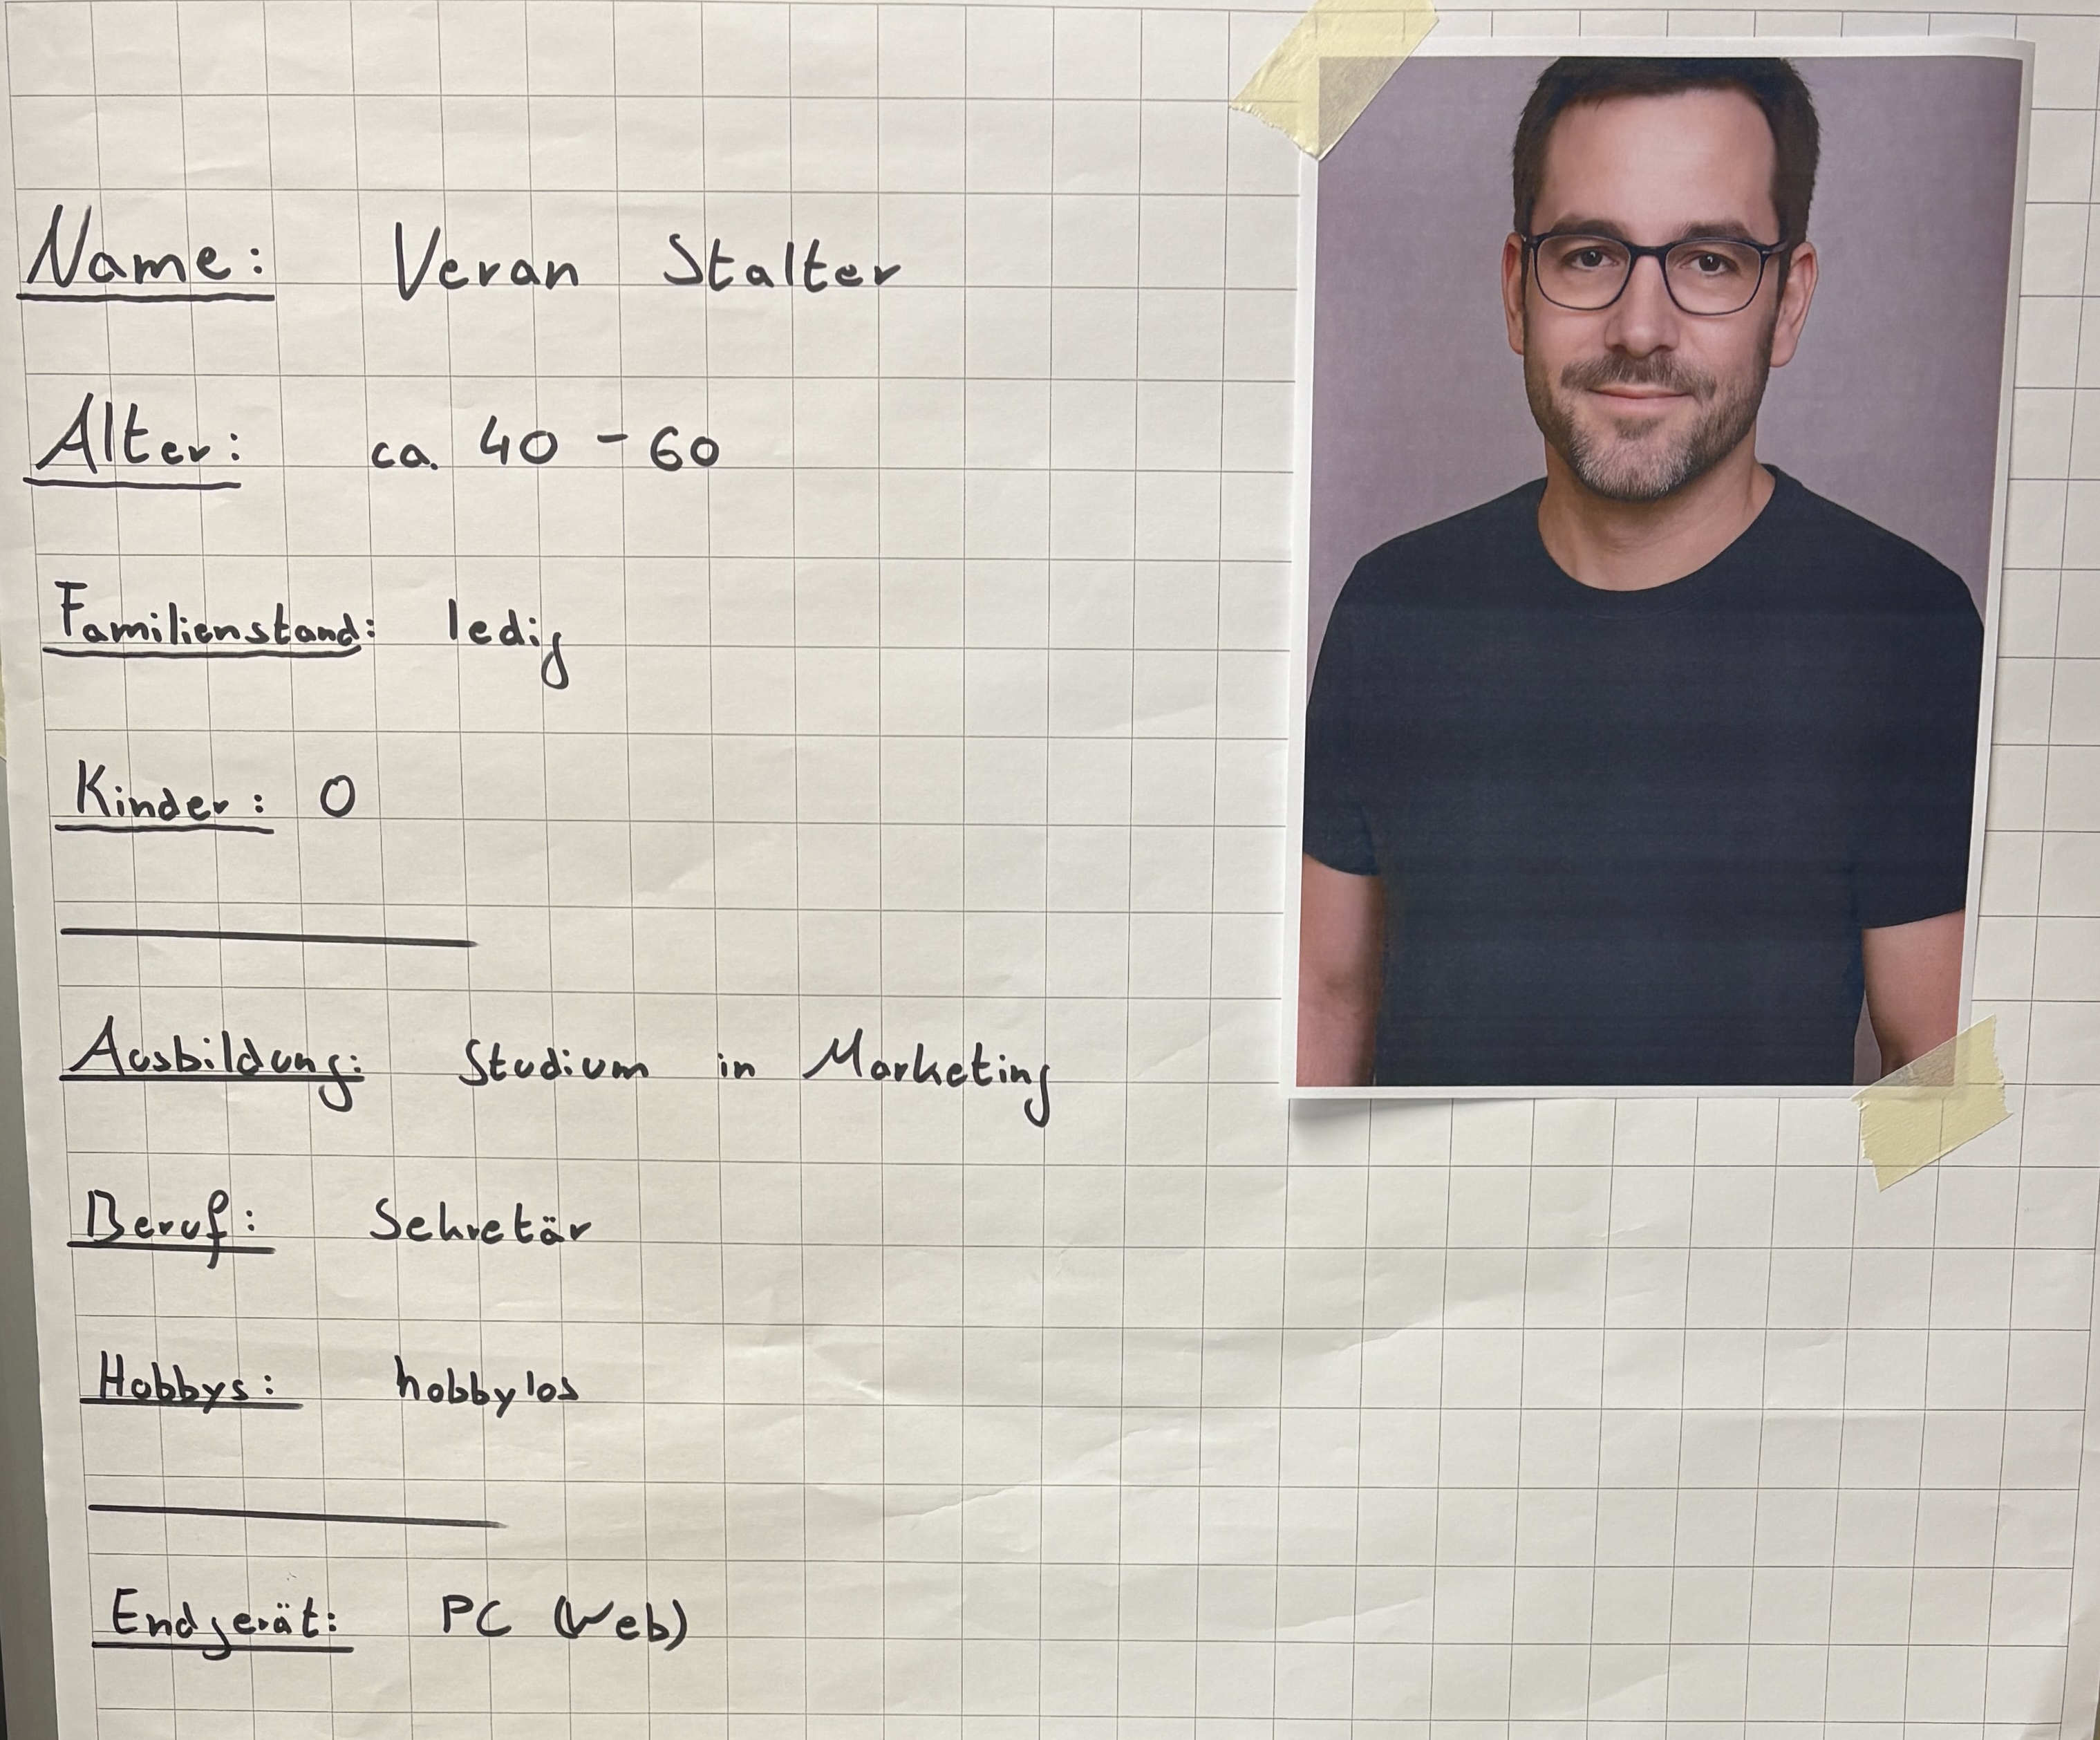 Name: Veran Stalter
Alter: ca. 40 - 60
Familienstand: ledig
Kinder: 0
Ausbildung: Studium in Marketing
Beruf: Sekretär
Hobbys: hobbylos
Endgerät: PC (Web)